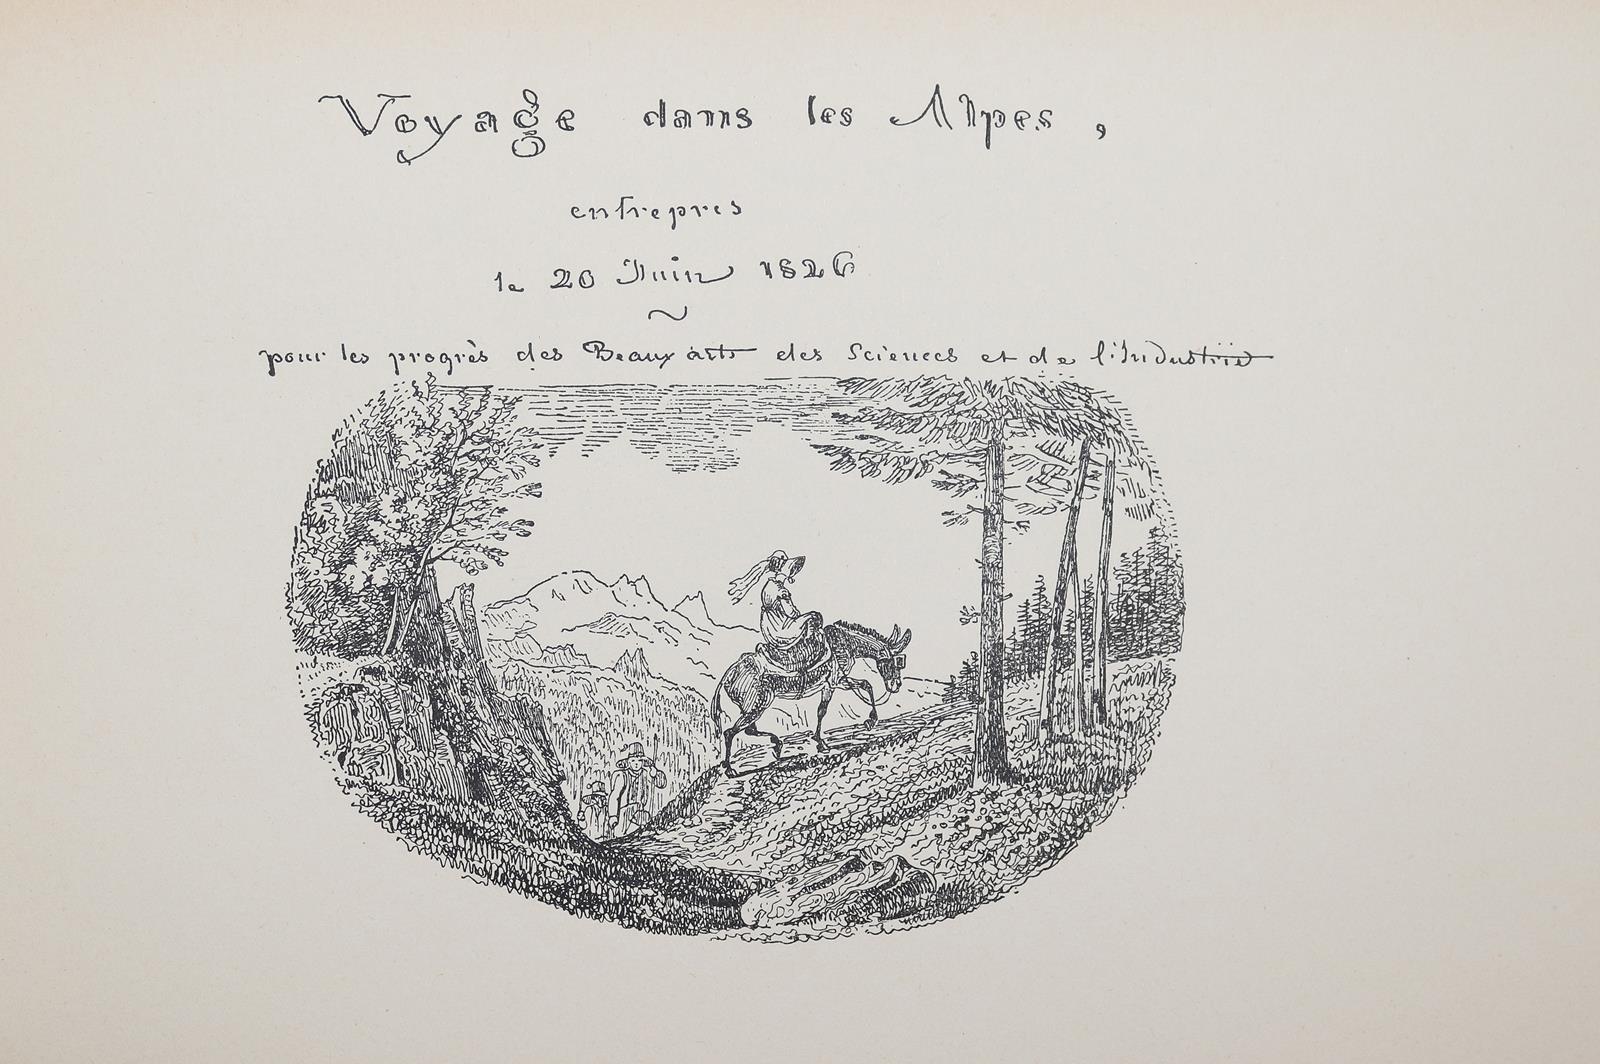 Voyage dans les Alpes,
entrepris
le 20 Juin 1826
~
pour les progrès des Beaux arts des Sciences et de l'Industrie